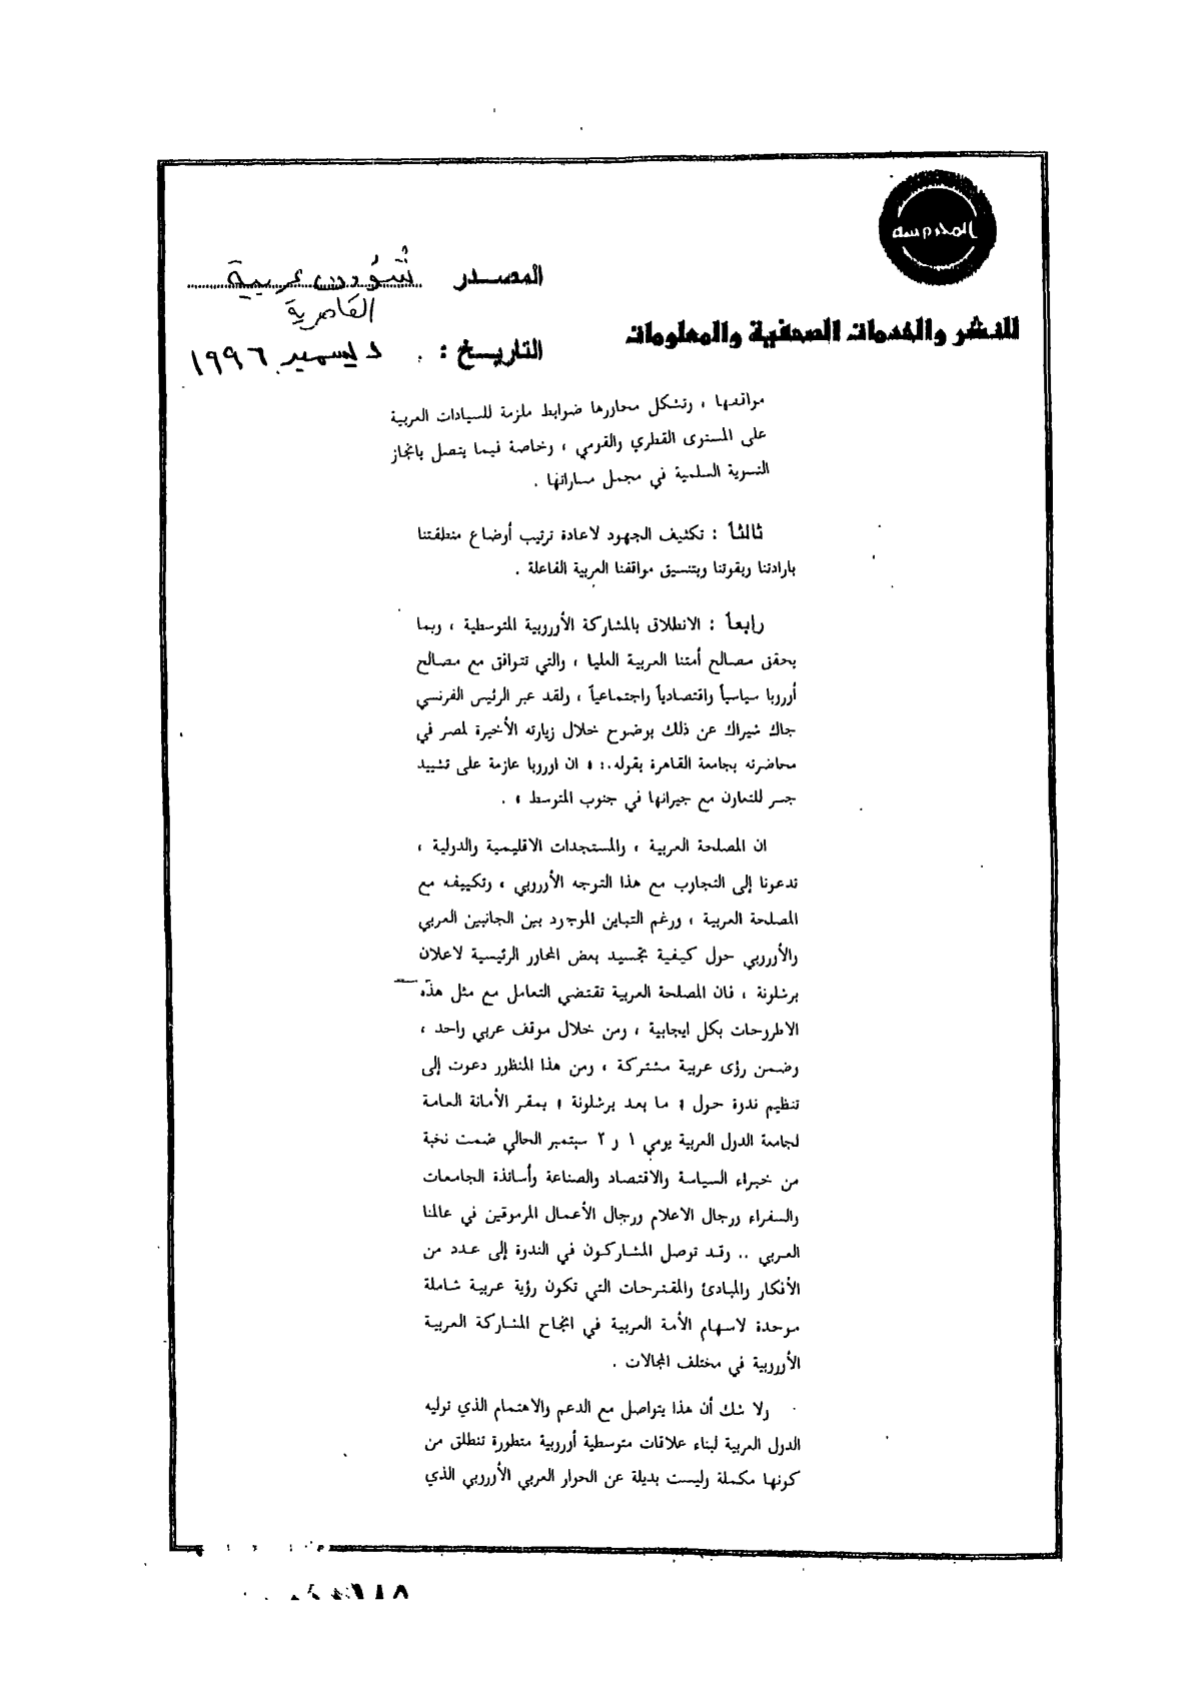 المدرسة
المصدر شؤون عربية
القاهرية
للنشر والخدمات الصحفية والمعلومات
التاريخ : ديسمبر ١٩٩٦
مواقعها ، وتشكل محاورها ضوابط ملزمة للسيادات العربية
على المستوى القطري والقومي ، وخاصة فيما يتصل بانجاز
التسوية السلمية في مجمل مساراتها .
ثالثاً : تكثيف الجهود لاعادة ترتيب أوضاع منطقتنا
بارادتنا وبقوتنا وبتنسيق مواقفنا العربية الفاعلة .
رابعاً : الانطلاق بالمشاركة الأوروبية المتوسطية ، وبما
يحقق مصالح أمتنا العربية العليا ، والتي تتوافق مع مصالح
أوروبا سياسياً واقتصادياً واجتماعياً ، ولقد عبر الرئيس الفرنسي
جاك شيراك عن ذلك بوضوح خلال زيارته الأخيرة لمصر في
محاضرته بجامعة القاهرة بقوله : « ان اوروبا عازمة على تشييد
جسر للتعاون مع جيرانها في جنوب المتوسط » .
ان المصلحة العربية ، والمستجدات الاقليمية والدولية ،
تدعونا إلى التجاوب مع هذا التوجه الأوروبي ، وتكييفه مع
المصلحة العربية ، ورغم التباين الموجود بين الجانبين العربي
والأوروبي حول كيفية تجسيد بعض المحاور الرئيسية لاعلان
برشلونة ، فان المصلحة العربية تقتضي التعامل مع مثل هذه
الاطروحات بكل ايجابية ، ومن خلال موقف عربي واحد ،
وضمن رؤى عربية مشتركة ، ومن هذا المنظور دعوت إلى
تنظيم ندوة حول « ما بعد برشلونة » بمقر الأمانة العامة
لجامعة الدول العربية يومي ١ و ٢ سبتمبر الحالي ضمت نخبة
من خبراء السياسة والاقتصاد والصناعة وأساتذة الجامعات
والسفراء ورجال الاعلام ورجال الأعمال المرموقين في عالمنا
العربي .. وقد توصل المشاركون في الندوة إلى عدد من
الأفكار والمبادئ والمقترحات التي تكون رؤية عربية شاملة
موحدة لاسهام الأمة العربية في انجاح المشاركة العربية
الأوروبية في مختلف المجالات .
ولا شك أن هذا يتواصل مع الدعم والاهتمام الذي توليه
الدول العربية لبناء علاقات متوسطية أوروبية متطورة تنطلق من
كونها مكملة وليست بديلة عن الحوار العربي الأوروبي الذي